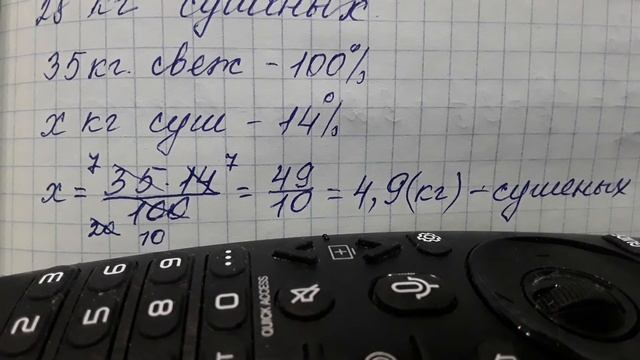 28 кг сушеных.
35 кг. свеж - 100%
х кг суш - 14%
7 7
х = 35 · 14 / 100 = 49/10 = 4,9 (кг) - сушеных
20 10
3 6 9 ...
2 5 8 0 QUICK ACCESS